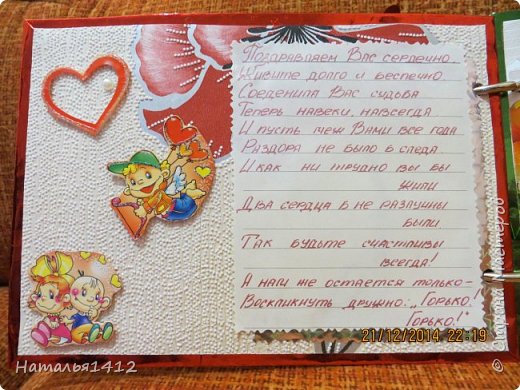 Поздравляем Вас сердечно.
Живите долго и беспечно
Соеденила Вас судьба
Теперь навеки, навсегда.
И пусть меж Вами все года
Раздора не было б следа.
И как ни трудно вы бы
жили
Два сердца б не разлучны
были.
Так будьте счастливы
всегда!
А нам же остается только-
Воскликнуть дружно: „Горько!
Горько!"
21/12/2014 22:19
Наталья1412